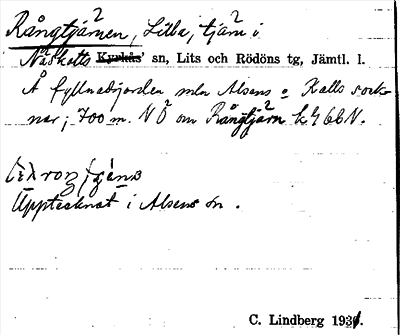 Rångtjärnen, Lilla, tjärn i
Näskotts Kyrkås' sn, Lits och Rödöns tg, Jämtl. l.
Å fyllnadsjorden mln Alsens o Kalls sock-
nar; 700 m. NÖ om Rångtjärn k. 466 N.
Upptecknat i Alsens sn.
C. Lindberg 1931.